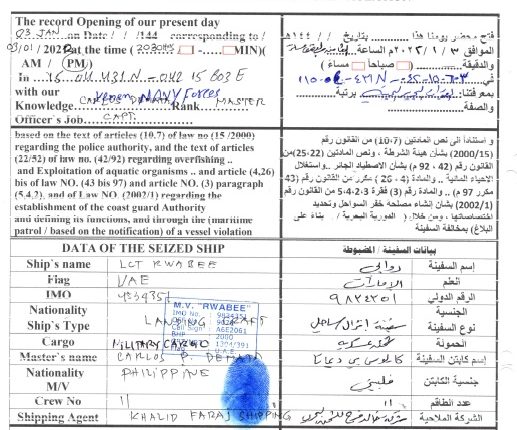 The record Opening of our present day
03 JAN
on Date / /144 corresponding to /
03/01/2022 at the time (2030HRS MIN)
AM / PM)
In 15 04 431N - 042 15 603E
with our Yemen NAVY forces
Knowledge CARLOS DEMATA Rank MASTER
Officer's Job CAPT.
based on the text of articles (10,7) of law no (15 /2000)
regarding the police authority, and the text of articles
(22/52) of law no. (42/92) regarding overfishing ..
and Exploitation of aquatic organisms .. and article (4,26)
bis of law NO. (43 bis 97) and article NO. (3) paragraph
(5.4.2), and of Law NO. (2002/1) regarding the
establishment of the coast guard Authority
and defining its functions, and through the (maritime
patrol / based on the notification) of a vessel violation
فتح محضر يومنا هذا بتاريخ / /١٤٤هـ
الموافق ٢٠٢٢/١/٣م الساعة
صباحاً مساءً )
في
بمعرفتنا برتبة
والصفة
و استناداً الى نص المادتين (7-10) من القانون رقم
(2000/15) بشأن هيئة الشرطة ، ونص المادتين (22-25)من
القانون رقم (42 / 92 م) بشأن الاصطياد الجائر ..واستغلال
الاحياء المائية .. والمادة (4 - 26 ) مكرر من القانون رقم (43
مكرر 97 م) .. والمادة رقم (3) فقرة 3-2-4-5 من القانون رقم
(2002/1) بشان إنشاء مصلحة خفر السواحل وتحديد
اختصاصاتها ، ومن خلال( الدورية البحرية / بناء على
البلاغ) بمخالفة السفينة
DATA OF THE SEIZED SHIP
بيانات السفينة / المضبوطة
Ship's name LCT RWABEE
روابي إسم السفينة
Flag UAE
الإمارات العلم
IMO 9834351
٩٨٣٤٣٥١ الرقم الدولي
Nationality
الجنسية
Ship's Type LANDING CRAFT
سفينة إنزال نوع السفينة
Cargo MILITARY CARGO
الحمولة
Master's name CARLOS P. DEMATA
كارلوس بي ديماتا إسم كابتن السفينة
Nationality PHILIPPINE
M/V
فلبيني جنسية الكابتن
Crew No 11
١١ عدد الطاقم
Shipping Agent KHALID FARAJ SHIPPING
شركة خالد فرج للشحن الشركة الملاحية
M.V. "RWABEE"
IMO No. 9834351
Call Sign: A6E2061